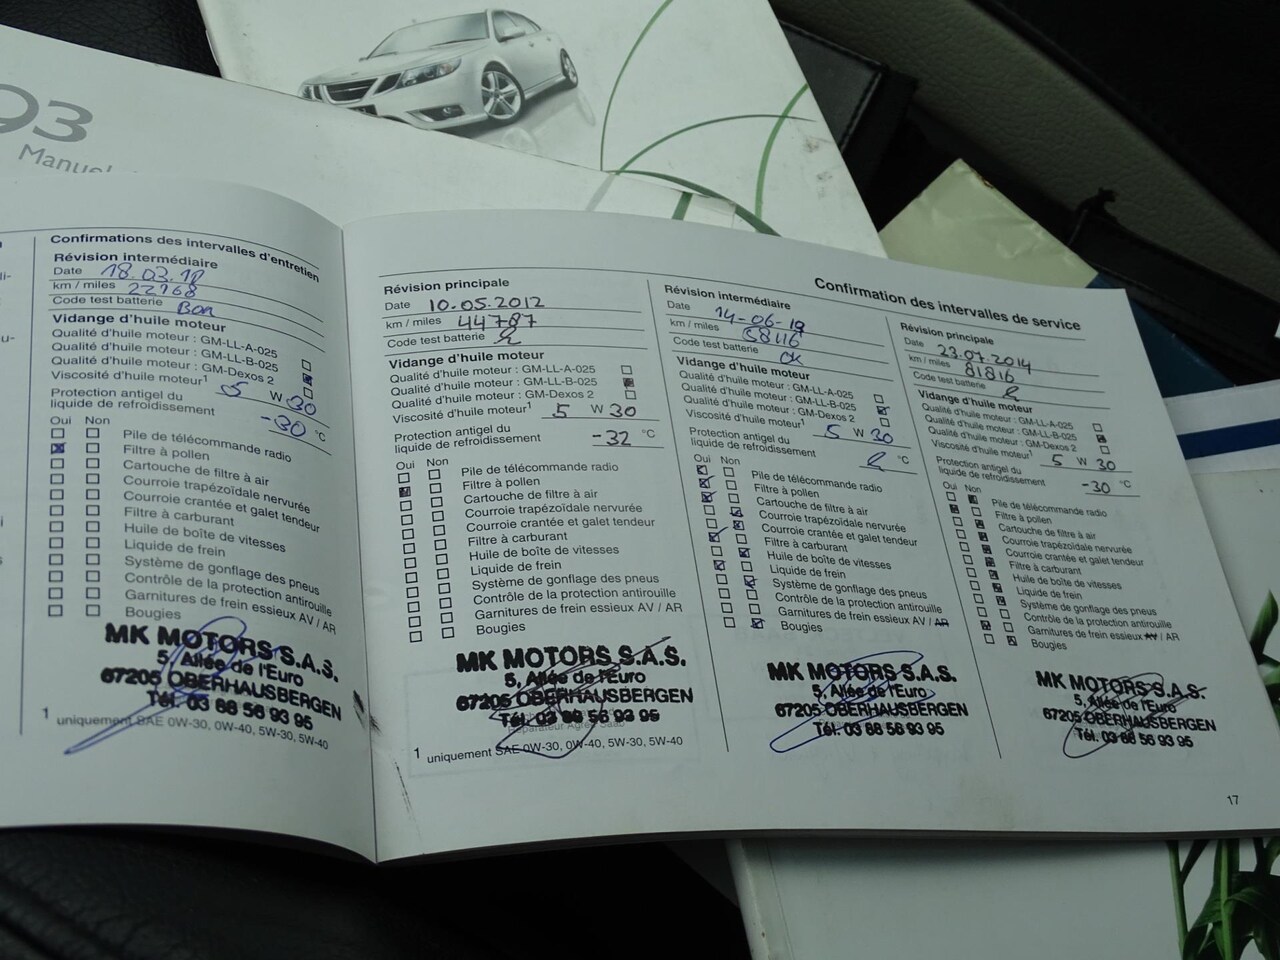 93
Manuel
Confirmations des intervalles d'entretien
Révision intermédiaire
Date 18.03.
km / miles 22768
Code test batterie Bon
Vidange d'huile moteur
Qualité d'huile moteur : GM-LL-A-025
Qualité d'huile moteur : GM-LL-B-025
Qualité d'huile moteur : GM-Dexos 2
Viscosité d'huile moteur1 5 W 30
Protection antigel du
liquide de refroidissement -30 °C
Oui Non
Pile de télécommande radio
Filtre à pollen
Cartouche de filtre à air
Courroie trapézoïdale nervurée
Courroie crantée et galet tendeur
Filtre à carburant
Huile de boîte de vitesses
Liquide de frein
Système de gonflage des pneus
Contrôle de la protection antirouille
Garnitures de frein essieux AV / AR
Bougies
MK MOTORS S.A.S.
5, Allée de l'Euro
67205 OBERHAUSBERGEN
Tél. 03 88 56 93 95
1 uniquement SAE 0W-30, 0W-40, 5W-30, 5W-40
Confirmation des intervalles de service
Révision principale
Date 10.05.2012
km / miles 44787
Code test batterie
Vidange d'huile moteur
Qualité d'huile moteur : GM-LL-A-025
Qualité d'huile moteur : GM-LL-B-025
Qualité d'huile moteur : GM-Dexos 2
Viscosité d'huile moteur1 5 W 30
Protection antigel du
liquide de refroidissement -32 °C
Oui Non
Pile de télécommande radio
Filtre à pollen
Cartouche de filtre à air
Courroie trapézoïdale nervurée
Courroie crantée et galet tendeur
Filtre à carburant
Huile de boîte de vitesses
Liquide de frein
Système de gonflage des pneus
Contrôle de la protection antirouille
Garnitures de frein essieux AV / AR
Bougies
MK MOTORS S.A.S.
5, Allée de l'Euro
67205 OBERHAUSBERGEN
Tél. 03 88 56 93 95
1 uniquement SAE 0W-30, 0W-40, 5W-30, 5W-40
Révision intermédiaire
Date 14-06-
km / miles 58116
Code test batterie OK
Vidange d'huile moteur
Qualité d'huile moteur : GM-LL-A-025
Qualité d'huile moteur : GM-LL-B-025
Qualité d'huile moteur : GM-Dexos 2
Viscosité d'huile moteur1 5 W 30
Protection antigel du
liquide de refroidissement °C
Oui Non
Pile de télécommande radio
Filtre à pollen
Cartouche de filtre à air
Courroie trapézoïdale nervurée
Courroie crantée et galet tendeur
Filtre à carburant
Huile de boîte de vitesses
Liquide de frein
Système de gonflage des pneus
Contrôle de la protection antirouille
Garnitures de frein essieux AV / AR
Bougies
MK MOTORS S.A.S.
5, Allée de l'Euro
67205 OBERHAUSBERGEN
Tél. 03 88 56 93 95
Révision principale
Date 23.07.2014
km / miles 81816
Code test batterie
Vidange d'huile moteur
Qualité d'huile moteur : GM-LL-A-025
Qualité d'huile moteur : GM-LL-B-025
Qualité d'huile moteur : GM-Dexos 2
Viscosité d'huile moteur1 5 W 30
Protection antigel du
liquide de refroidissement -30 °C
Oui Non
Pile de télécommande radio
Filtre à pollen
Cartouche de filtre à air
Courroie trapézoïdale nervurée
Courroie crantée et galet tendeur
Filtre à carburant
Huile de boîte de vitesses
Liquide de frein
Système de gonflage des pneus
Contrôle de la protection antirouille
Garnitures de frein essieux AV / AR
Bougies
MK MOTORS S.A.S.
5, Allée de l'Euro
67205 OBERHAUSBERGEN
Tél. 03 88 56 93 95
17